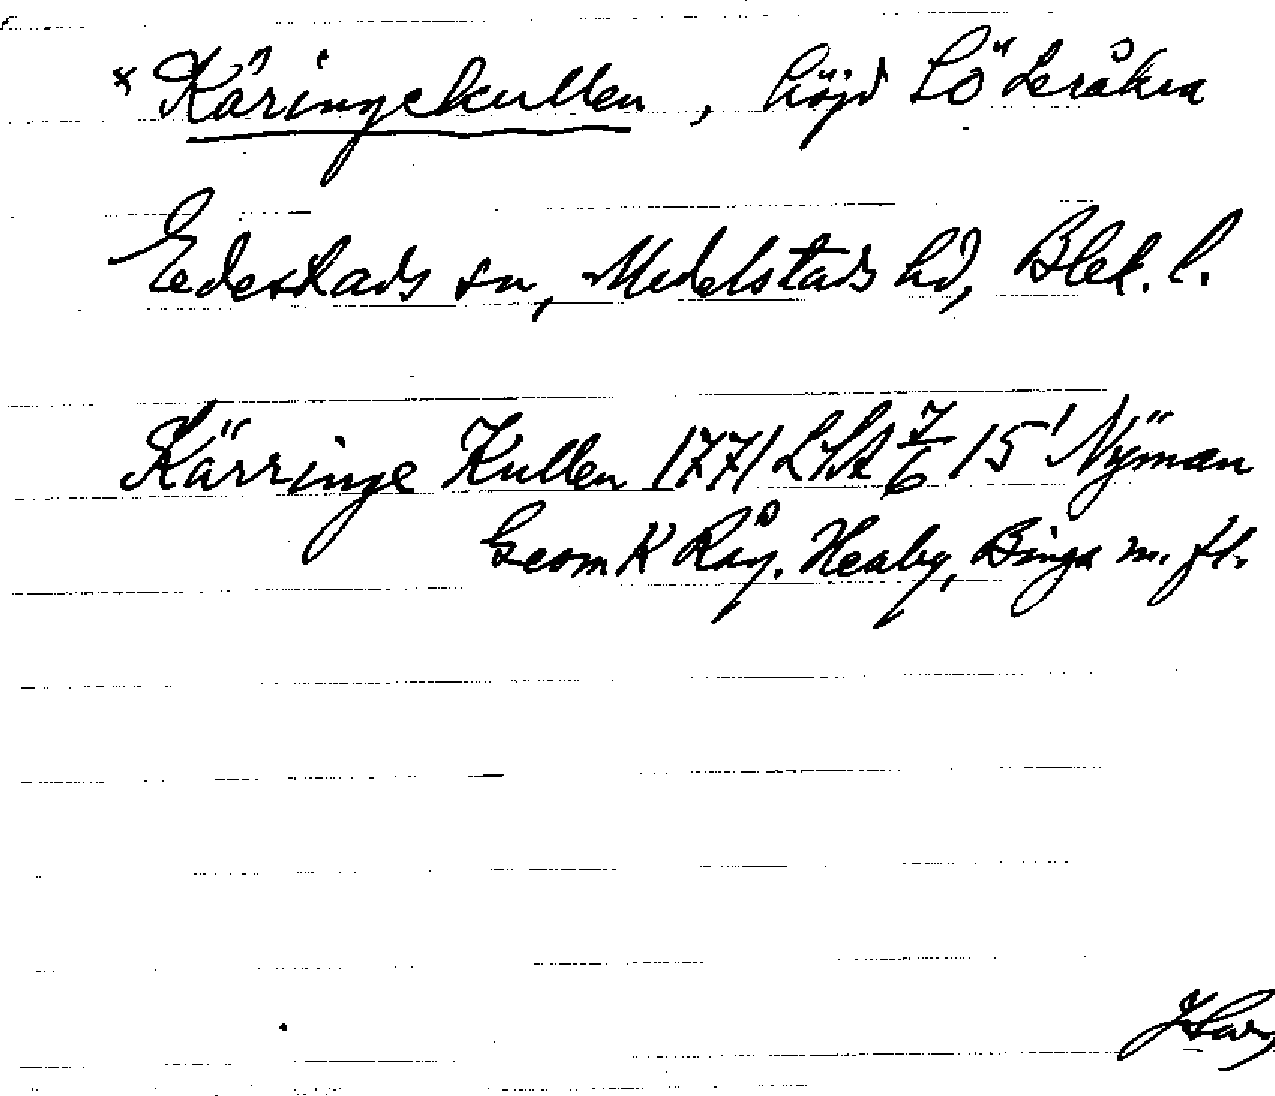 * Käringekullen, höjd SÖ Leråkra
Edestads sn, Medelstads hd, Blek. l.
Kärringe Kullen 1771 LSA 7/6 15' Nyman
Geom K Råg. Heaby, Binga m. fl.